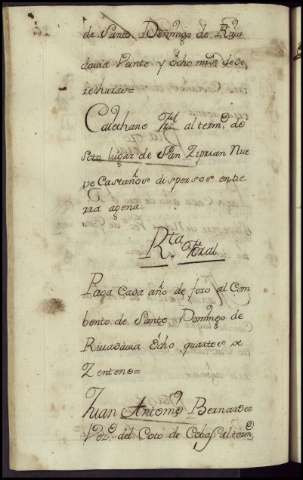 de Santo Domingo de Riva
davia Veinte y Ocho mrs. de de
rechuras=
Calehano al termo. de
este lugar de San Ziprian Nue
ve Castaños dispersos en tie
rra agena.
Rta. Foral
Paga Cada año de foro al Com
bento de Santo Domingo de
Rivadavia Ocho quartos de
Zenteno=
Juan Antonio Bernardez
Vezo. del Coto de Cobas al term.